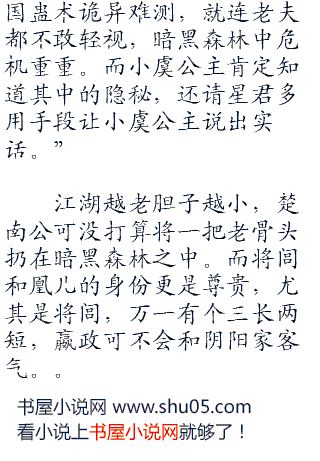 国蛊术诡异难测，就连老夫
都不敢轻视，暗黑森林中危
机重重。而小虞公主肯定知
道其中的隐秘，还请星君多
用手段让小虞公主说出实
话。”
江湖越老胆子越小，楚
南公可没打算将一把老骨头
扔在暗黑森林之中。而将闾
和凰儿的身份更是尊贵，尤
其是将闾，万一有个三长两
短，嬴政可不会和阴阳家客
气。。
书屋小说网 www.shu05.com
看小说上书屋小说网就够了！